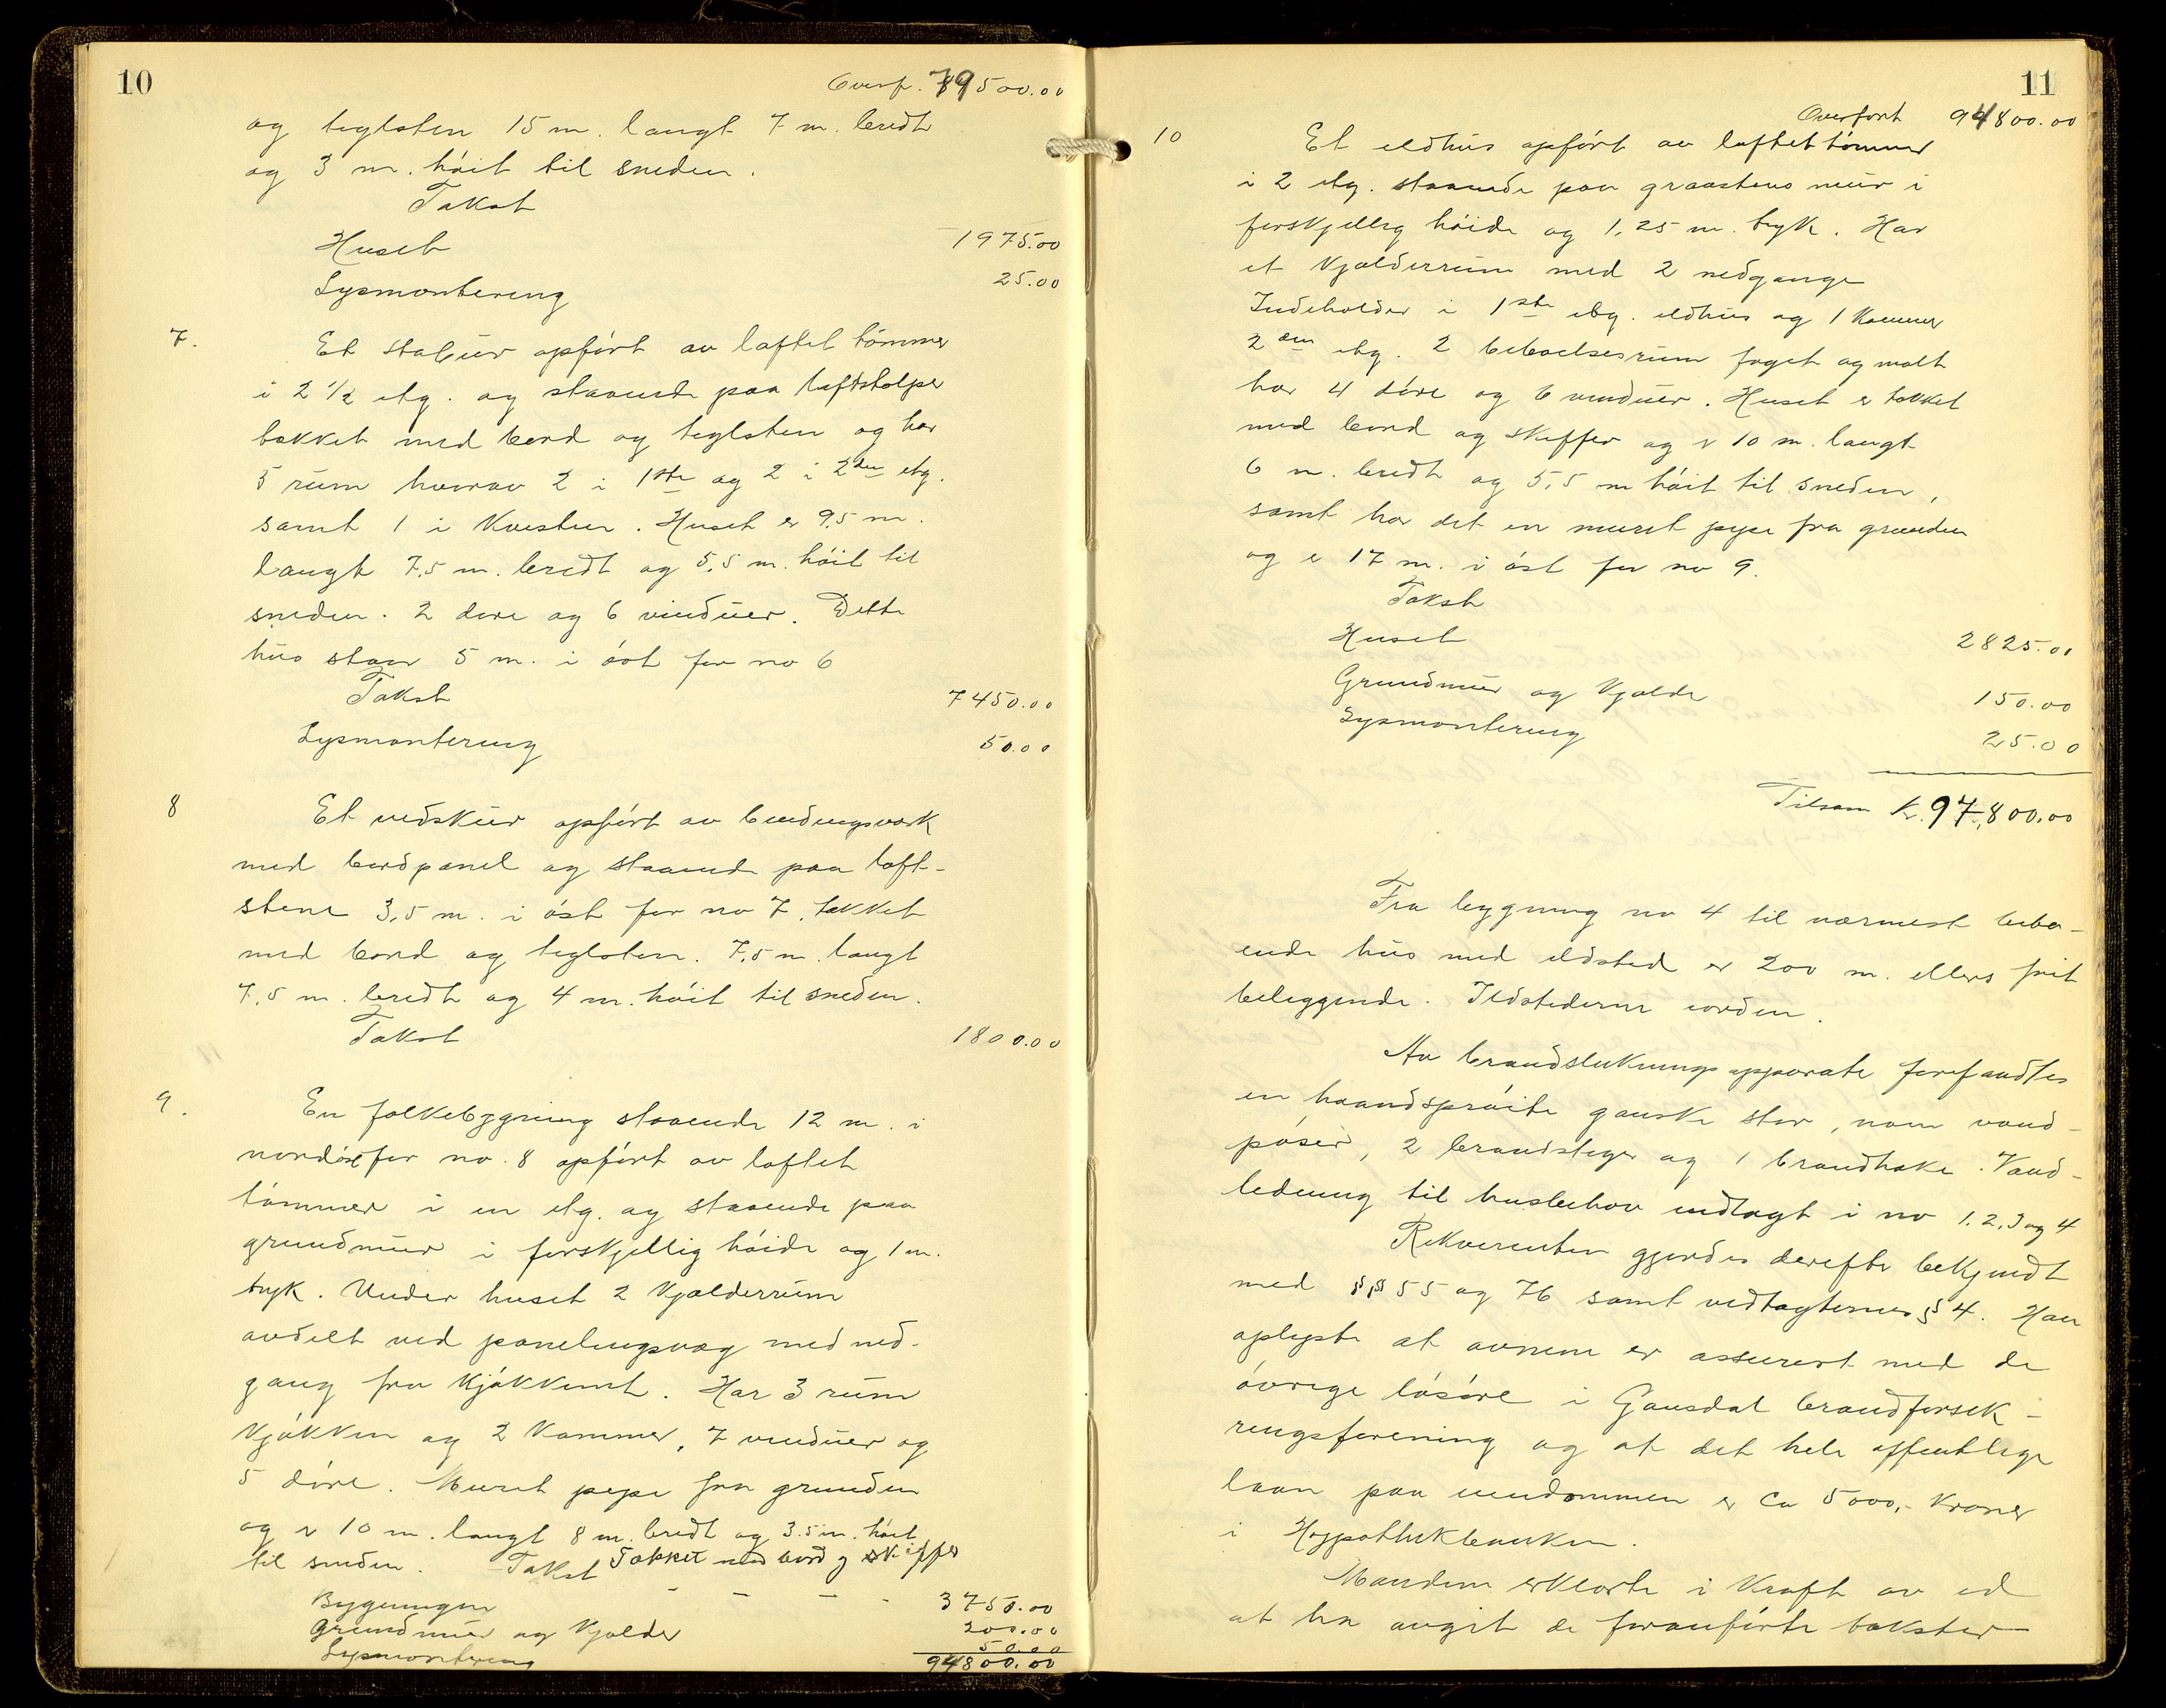 10
Overf. 79500.00
og teglsten 15 m. langt 7 m. bredt
og 3 m. høit til sneden.
Takst
Huset 1975.00
Lysmontering 25.00
7. Et stabur opført av laftet tømmer
i 2 1/2 etg. og staaende paa laftstolper
tækket med bord og teglsten og har
5 rum hvorav 2 i 1ste og 2 i 2den etg.
samt 1 i Kvisten. Huset er 9,5 m.
langt 7,5 m. bredt og 5,5 m. høit til
sneden. 2 døre og 6 vinduer. Dette
hus staar 5 m. i øst for no 6
Takst 7450.00
Lysmontering 50.00
8 Et vedskur opført av bindingsværk
med bordpanel og staaende paa toft-
stene 3,5 m. i øst for no 7, tækket
med bord og teglsten. 7,5 m. langt
7,5 m. bredt og 4 m. høit til sneden.
Takst 1800.00
9. En folkebygning staaende 12 m. i
nordøst for no. 8 opført av laftet
tømmer i en etg. og staaende paa
grundmur i forskjellig høide og 1 m.
tyk. Under huset 2 Kjælderrum
avdelt ved panelingsvæg med ned-
gang fra Kjøkkenet. Har 3 rum
Kjøkken og 2 Kammer, 7 vinduer og
5 døre. Muret pipe fra grunden
og er 10 m. langt 8 m. bredt og 3.5 m. høit
til sneden. Takst Tækket med bord og skiffer
Bygningen 3750.00
Grundmur og Kjælder 200.00
Lysmontering 50.00
94800.00
11
Overført 94800.00
10 Et eldhus opført av laftet tømmer
i 2 etg. staaende paa graastens mur i
forskjellig høide og 1,25 m. tyk. Har
et Kjælderrum med 2 nedgange
Indeholder i 1ste etg. eldhus og 1 Kammer
2den etg. 2 beboelsesrum foget og malt
har 4 døre og 6 vinduer. Huset er tækket
med bord og skiffer og er 10 m. langt
6 m. bredt og 5,5 m høit til sneden,
samt har det en muret pipe fra grunden
og er 17 m. i øst for no 9.
Takst
Huset 2825.00
Grundmur og Kjælder 150.00
Lysmontering 25.00
Tilsam Kr. 97,800.00
Fra bygning no 4 til nærmest bebo-
ende hus med ildsted er 200 m. ellers frit
beliggende. Ildstederne iorden.
Av brandslukningsapparater forefandtes
en haandsprøite ganske stor, vand-
pøser, 2 brandstiger og 1 brandhake. Vand-
ledning til husbehov indlagt i no 1, 2, 3 og 4
Rekvirenten gjordes derefter bekjendt
med §§ 55 og 76 samt vedtagternes § 4. Han
oplyste at avnem er assurert med de
øvrige løsøre i Gausdal brandforsik-
ringsforening og at det hele offentlige
laan paa eiendommen er Ca 5000,- Kroner
i Hypothekbanken.
Manden erklærte i Kraft av ed
at ha avgit de foranførte takster